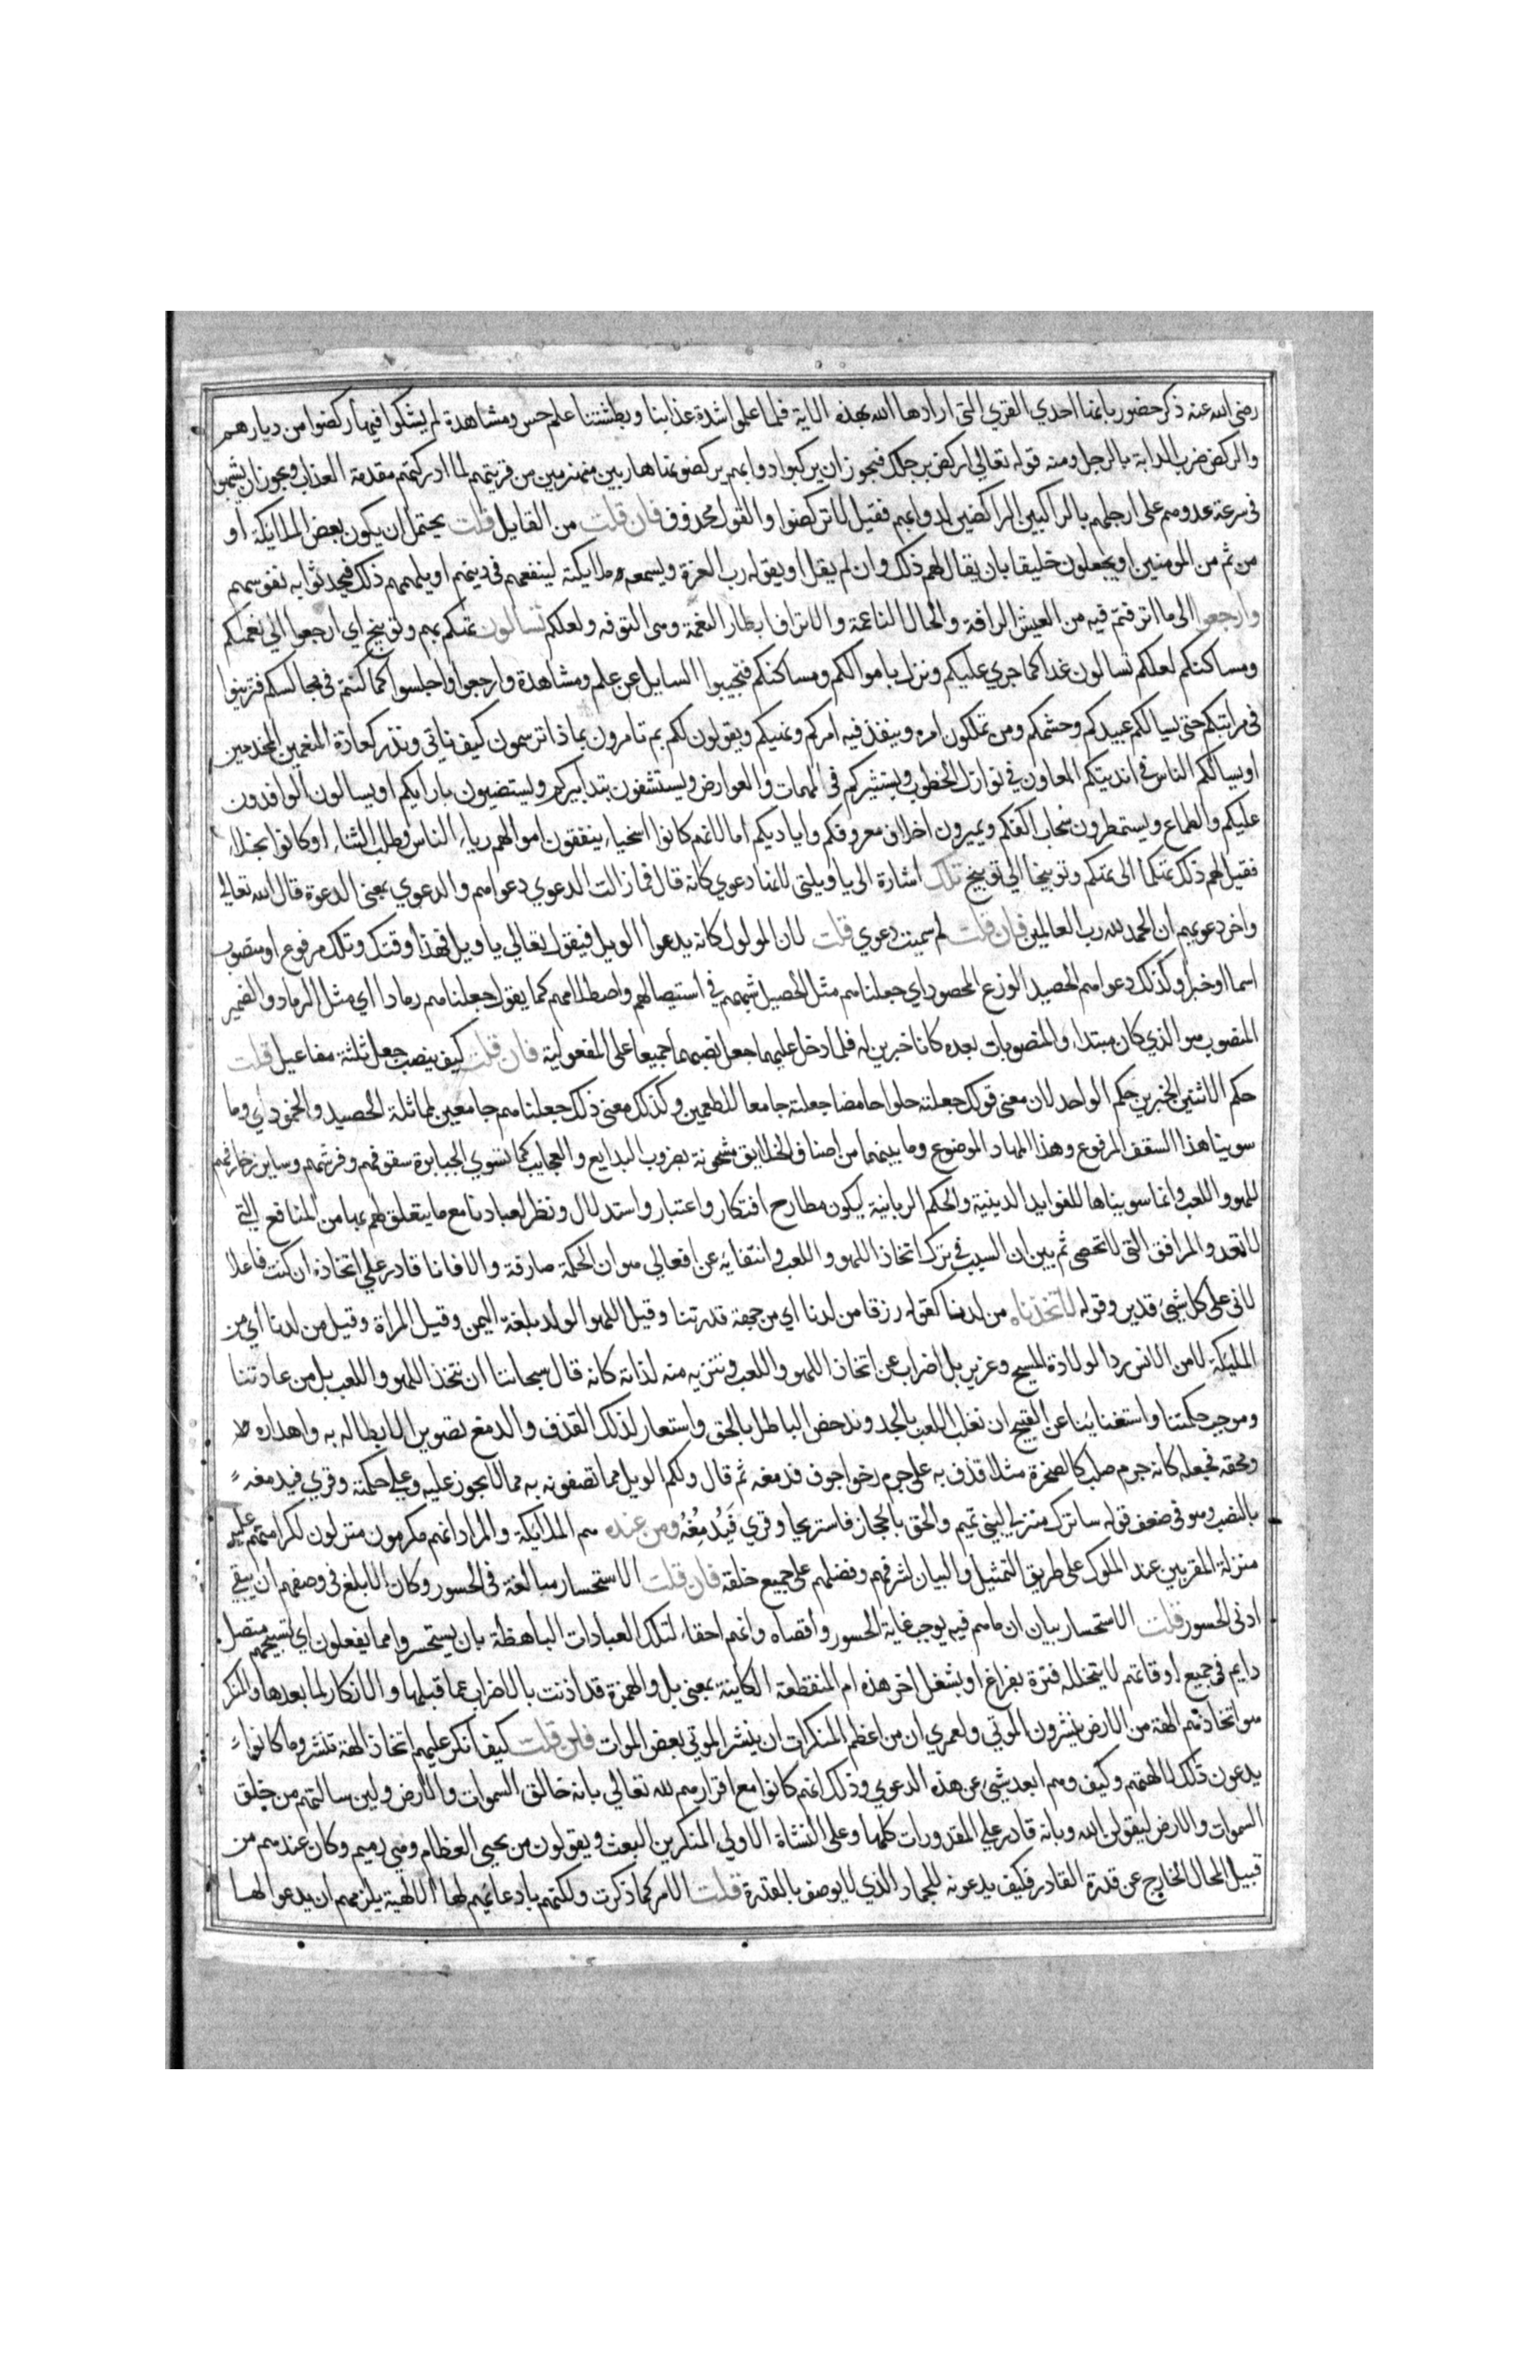 رضي الله عنه ذكر حضور بانها احدي القري التي ارادها الله بهذه الاية فلما علموا شدة عذابنا وبطشتنا علم حس ومشاهدة لم يشكوا فيها ركضوا من ديارهم
والركض ضرب الدابة بالرجل ومنه قوله تعالي اركض برجلك فيجوز ان يركبوا دوابهم يركضونها هاربين منهزمين من قريتهم لما ادركتهم مقدمة العذاب ويجوز ان يشبهوا
في سرعة عدوهم علي ارجلهم بالراكبين الراكضين لدوابهم فقيل لا تركضوا والقول محذوف فان قلت من القايل قلت يحتمل ان يكون بعض الملايكة او
من ثم من المومنين او يجعلون خليقا بان يقال لهم ذلك وان لم يقل او يقوله رب العزة ويسمعه ملايكته لينفعهم في دينهم او يلهمهم ذلك فيحدثوا به نفوسهم
وارجعوا الي ما اترفتم فيه من العيش الرافه والحال الناعمة والاتراف ابطار النعمة وهي الترفه ولعلكم تسالون تهكم بهم وتوبيخ اي ارجعوا الي نعمتكم
ومساكنكم لعلكم تسالون غدا عما جري عليكم ونزل باموالكم ومساكنكم فتجيبوا السايل عن علم ومشاهدة وارجعوا واجلسوا كما كنتم في مجالسكم وترتبوا
في مراتبكم حتي يسالكم عبيدكم وحشمكم ومن تملكون امره وينفذ فيه امركم ونهيكم ويقولون لكم بم تامرون بماذا ترسمون كيف ناتي ونذر كعادة المنعمين المخدمين
او يسالكم الناس في انديتكم المعاون في نوازل الخطوب ويستشيركم في المهمات والعوارض ويستشفون بتدابيركم ويستضيون بارايكم او يسالون الوافدون
عليكم والطماع ويستمطرون سحاب اكفكم ويميرون اخلاف معروفكم واياديكم اما لانهم كانوا اسخياء ينفقون اموالهم رياء الناس وطلب الثناء او كانوا بخلاء
فقيل لهم ذلك تهكما الي تهكم وتوبيخا الي توبيخ تلك اشارة الي يا ويلتي لانها دعوي كانه قال فما زالت الدعوي دعواهم والدعوي بمعني الدعوة قال الله تعالي
واخر دعويهم ان الحمد لله رب العالمين فان قلت لم سميت دعوي قلت لان المولول كانه يدعوا الويل فيقول تعالي يا ويل فهذا وقتك وتلك مرفوع او منصوب
اسما او خبرا وكذلك دعواهم الحصيد الزرع المحصود اي جعلناهم مثل الحصيد شبههم في استيصالهم واصطلامهم كما يقول جعلناهم رمادا اي مثل الرماد والضمير
المنصوب هو الذي كان مبتدا والمنصوبات بعده كانا خبرين له فلما دخل عليهما جعل نصبهما جميعا علي المفعولية فان قلت كيف ينصب جعل ثلثة مفاعيل قلت
حكم الاثنين الخبرين حكم الواحد لان معني قولك جعلته حلوا حامضا جعلته جامعا للطعمين وكذلك معني ذلك جعلناهم جامعين لمماثلة الحصيد والخمود اي وما
سوينا هذا السقف المرفوع وهذا المهاد الموضوع وما بينهما من اصناف الخلايق مشحونة بضروب البدايع والعجايب كما تسوي الجبابرة سقوفهم وفرشهم وساير زخارفهم
للهو واللعب وانما سويناها للفوايد الدينية والحكم الربانية ليكون مطارح افتكار واعتبار واستدلال ونظر لعبادنا مع ما يتعلق لهم بها من المنافع التي
لا تعد والمرافق التي لا تحصي ثم بين ان السبب في ترك اتخاذ اللهو واللعب وانتفايه عن افعالي هو ان الحكمة صارفة والا فانا قادر علي اتخاذه ان كنت فاعلا
لاني علي كل شيئ قدير وقوله لاتخذناه من لدنا كقوله رزقا من لدنا اي من جهة قدرتنا وقيل اللهو الولد بلغة اليمن وقيل المراة وقيل من لدنا اي من
المليكة لا من الانس ردا لولادة المسيح وعزير بل اضراب عن اتخاذ اللهو واللعب وتنزيه منه لذاته كانه قال سبحاننا ان نتخذ اللهو واللعب بل من عادتنا
وموجب حكمتنا واستغناينا عن القبيح ان نغلب اللعب بالجد وندحض الباطل بالحق واستعار لذلك القذف والدمغ تصويرا لابطاله به واهداره
ومحقه فجعله كانه جرم صلب كالصخرة مثلا قذف به علي جرم رخو اجوف فدمغه ثم قال ولكم الويل مما تصفونه به مما لا يجوز عليه وعلي حكمته وقري فيدمغه
بالنصب وهو في ضعف قوله ساترك منزلي لبني تميم والحق بالحجاز فاستريحا وقري فَيَدْمُغُهُ ومن عنده هم الملايكة والمراد انهم مكرمون منزلون لكرامتهم عليه
منزلة المقربين عند الملوك علي طريق التمثيل والبيان لشرفهم وفضلهم علي جميع خلقه فان قلت الاستحسار مبالغة في الحسور وكان الابلغ في وصفهم ان ينفي
ادني الحسور قلت الاستحسار بيان ان ما هم فيه يوجب غاية الحسور واقصاه وانهم احقاء لتلك العبادات الباهظة بان يستحسروا مما يفعلون اي تسبيحهم متصل
دايم في جميع اوقاتهم لا يتخلله فترة بفراغ او بشغل اخر هذه ام المنقطعة الكاينة بمعني بل والهمزة قد اذنت بالاضراب عما قبلها والانكار لما بعدها والمنكر
هو اتخاذهم الهة من الارض ينشرون الموتي ولعمري ان من اعظم المنكرات ان ينشر الموتي بعض الموات فان قلت كيف انكر عليهم اتخاذ الهة تنشر وما كانوا
يدعون ذلك لالهتهم وكيف وهم ابعد شيئ عن هذه الدعوي وذلك انهم كانوا مع اقرارهم لله تعالي بانه خالق السموات والارض ولين سالتهم من خلق
السموات والارض ليقولن الله وبانه قادر علي المقدورات كلها وعلي النشاة الاولي المنكرين البعث ويقولون من يحيي العظام وهي رميم وكان عندهم من
قبيل المحال الخارج عن قدرة القادر فكيف يدعونه للجماد الذي لا يوصف بالقدرة قلت الامر كما ذكرت ولكنهم بادعايهم لها الالهية يلزمهم ان يدعوا لها